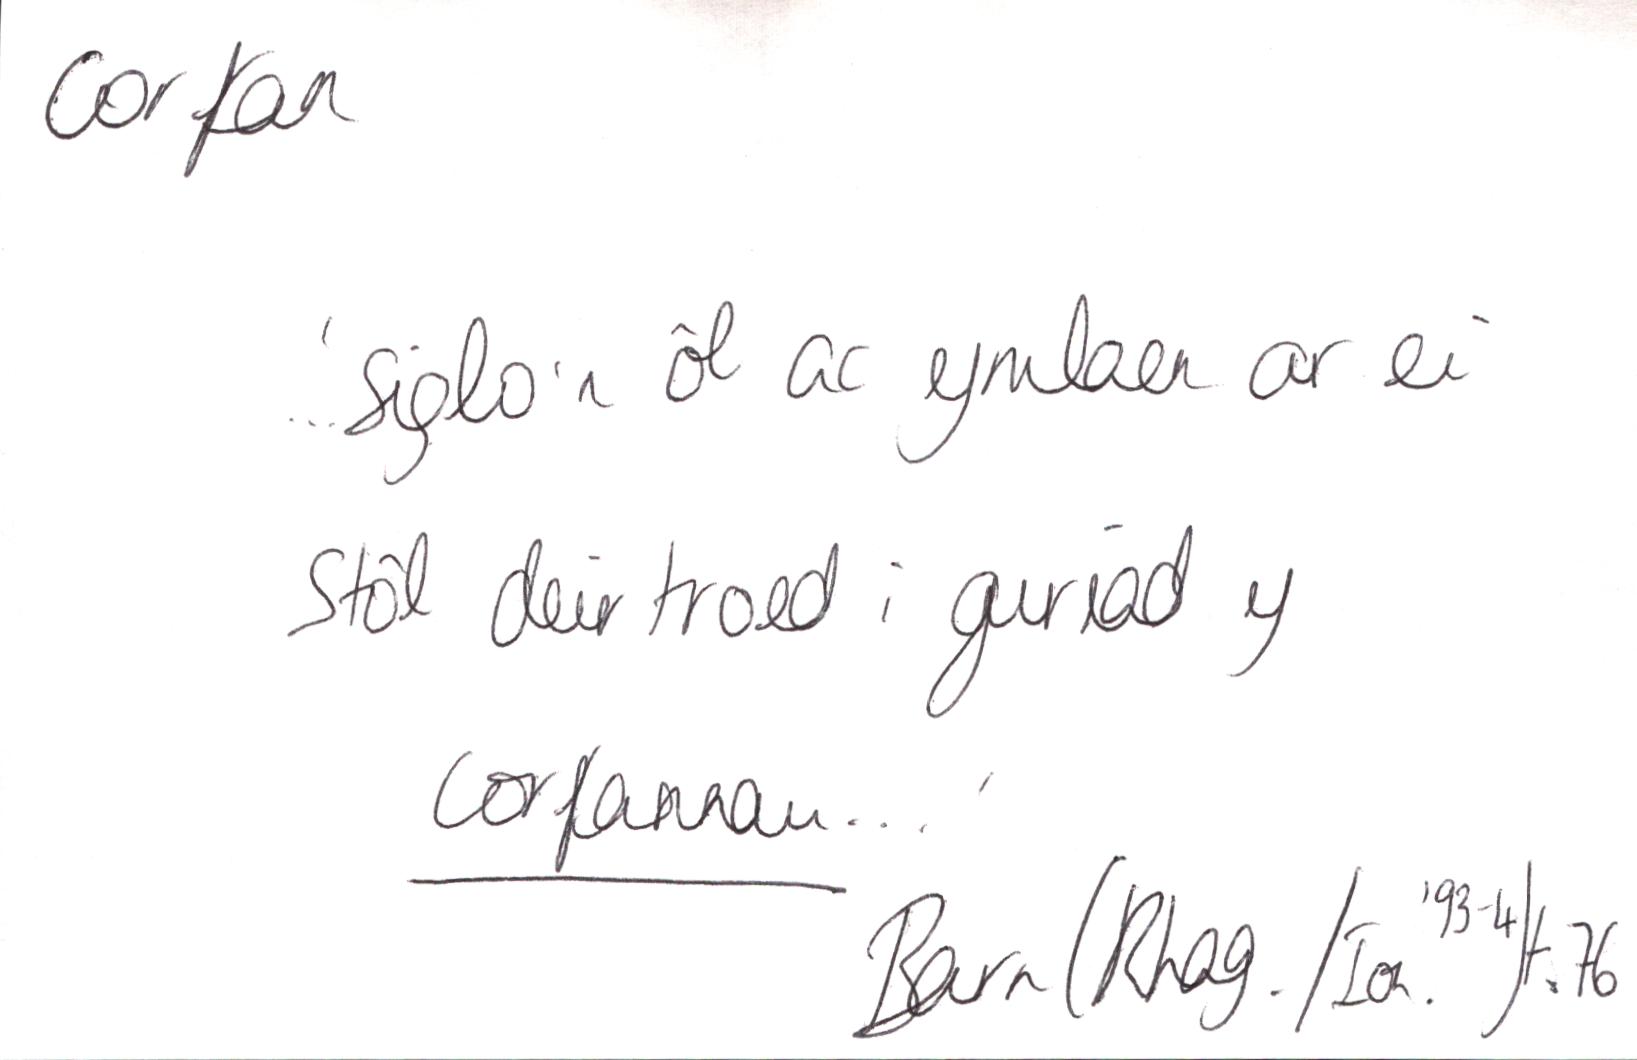 corfan
'...siglo'n ôl ac ymlaen ar ei
stôl deirtroed i guriad y
corfannau...'
Barn (Rhag./Ion. '93-4) t.76